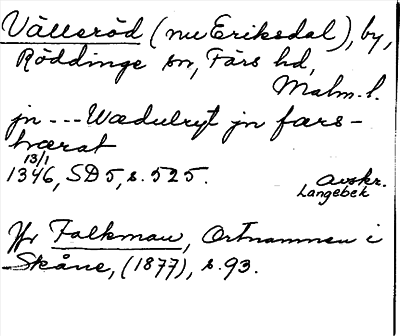 Välleröd (nu Eriksdal), by,
Röddinge sn, Färs hd,
Malm. l.
jn --- Wædulryt jn færs-
hærat
13/1
1346, SD 5, s. 525.
Avskr.
Langebek
Jfr Falkman, Ortnamnen i
Skåne, (1877), s. 93.